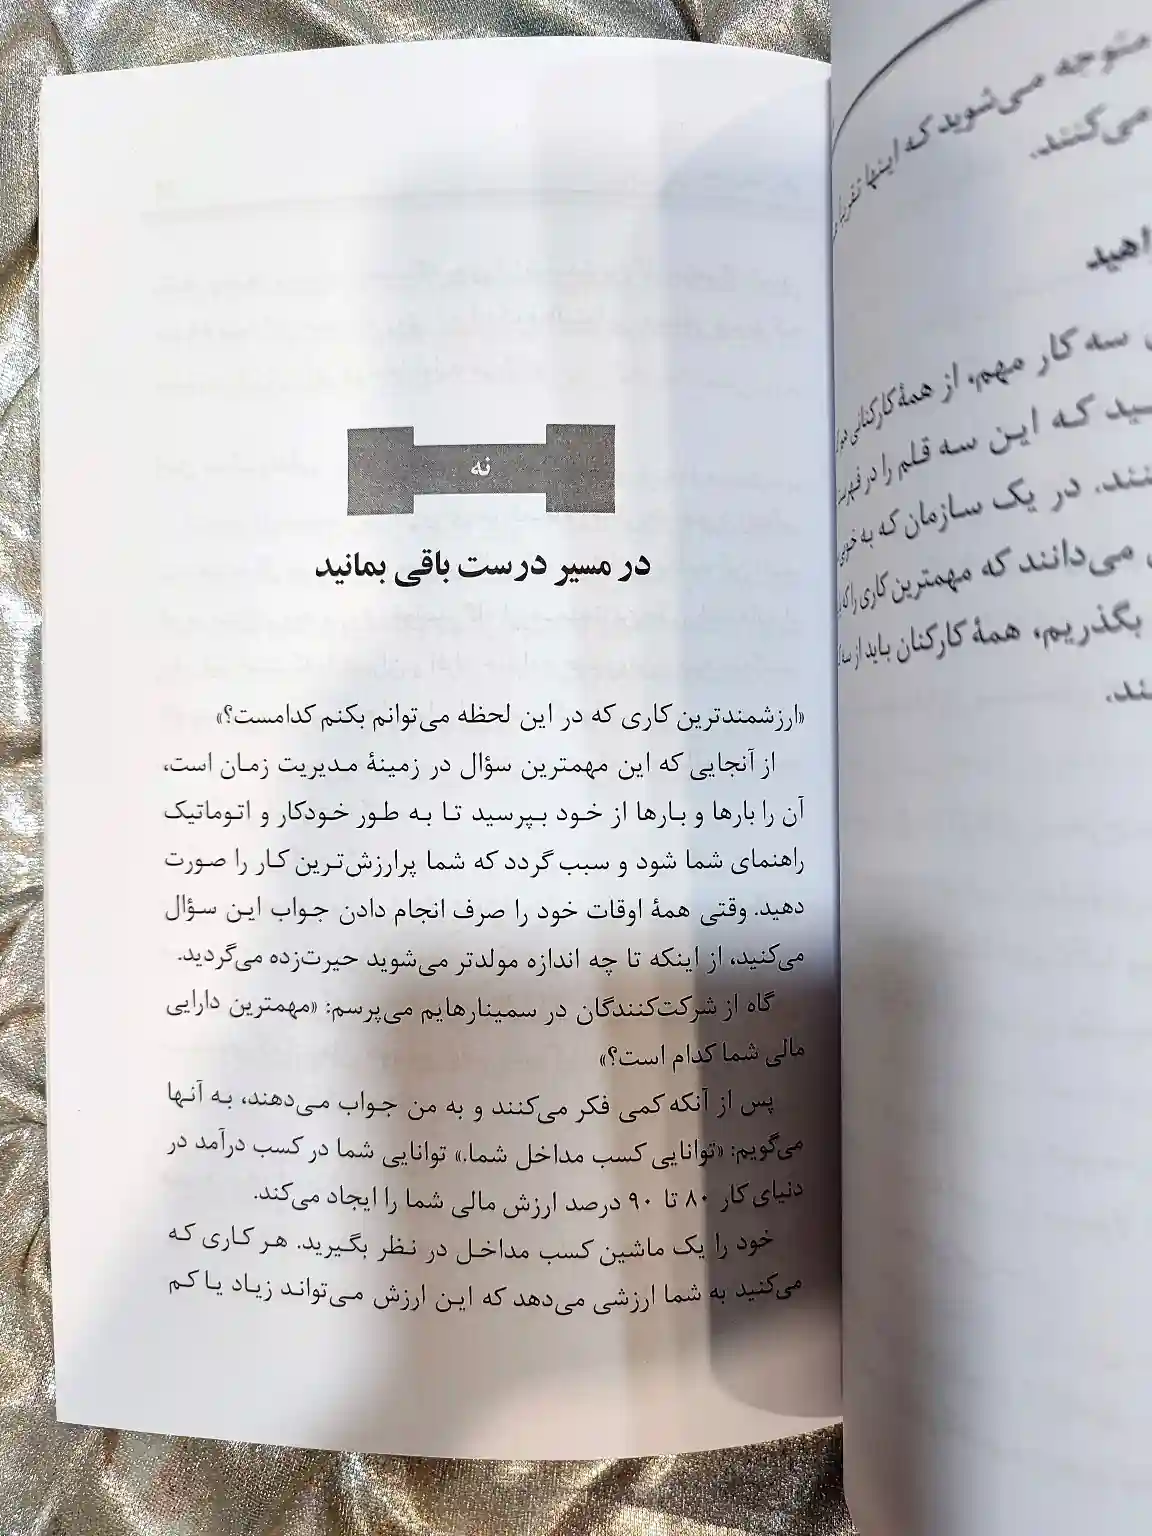 نه
در مسیر درست باقی بمانید
«ارزشمندترین کاری که در این لحظه می‌توانم بکنم کدامست؟»
از آنجایی که این مهمترین سؤال در زمینهٔ مدیریت زمان است،
آن را بارها و بارها از خود بپرسید تا به طور خودکار و اتوماتیک
راهنمای شما شود و سبب گردد که شما پرارزش‌ترین کار را صورت
دهید. وقتی همهٔ اوقات خود را صرف انجام دادن جواب این سؤال
می‌کنید، از اینکه تا چه اندازه مولدتر می‌شوید حیرت‌زده می‌گردید.
گاه از شرکت‌کنندگان در سمینارهایم می‌پرسم: «مهمترین دارایی
مالی شما کدام است؟»
پس از آنکه کمی فکر می‌کنند و به من جواب می‌دهند، به آنها
می‌گویم: «توانایی کسب مداخل شما.» توانایی شما در کسب درآمد در
دنیای کار ۸۰ تا ۹۰ درصد ارزش مالی شما را ایجاد می‌کند.
خود را یک ماشین کسب مداخل در نظر بگیرید. هر کاری که
می‌کنید به شما ارزشی می‌دهد که این ارزش می‌تواند زیاد یا کم
متوجه می‌شوید که اینها تقریباً
می‌کنند.
سه کار مهم، از همهٔ کارکنانی
که این سه قلم را در فهرست
در یک سازمان که به خوبی
می‌دانند که مهمترین کاری را که
بگذریم، همهٔ کارکنان باید از سه